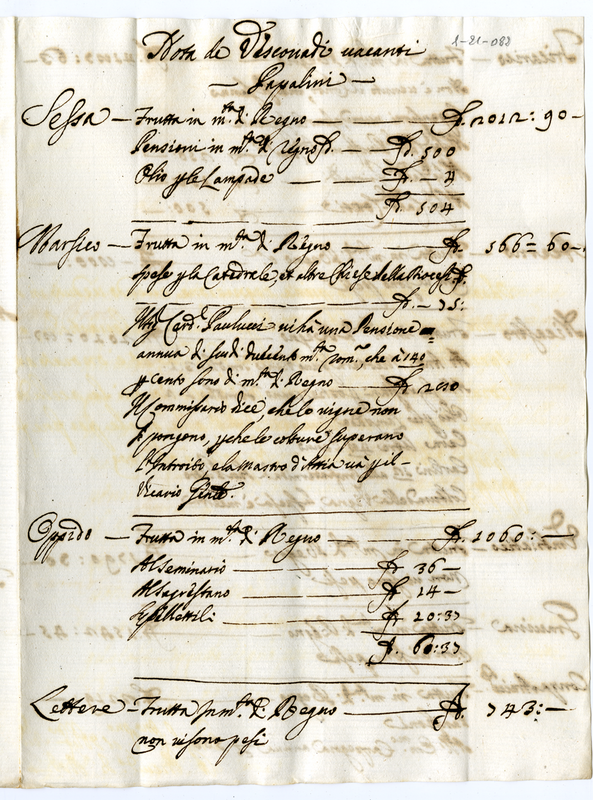 Nota de Vescouadi uacanti
1-21-082
— Papalini —
Sessa — Frutta in m.ta di Regno — — ₯. 2012: 90 —
Pensioni in m.ta di Regno — ₯. 500
Olio p le Lampade — — ₯. — 4
₯. 504
Marsico — Frutta in m.ta di Regno — — ₯. 566 = 60 —
spese p la Catedrale, et altre Chiese della Diocesi
₯. — 75:
Card. Paulucci ui hà una Pensione
annua di scudi duecento m.ta rom.a, che à 140
p cento sono di m.ta di Regno — ₯. 280
Il Commissario dice, che le vigne non
si pongono, p che le colture superano
l'Introito, e la Mastro d'Atti uà p il
Vicario Gñle.
Oppido — Frutta in m.ta di Regno — — ₯. 1060: —
Al Seminario — ₯. 36 —
Al Sagrestano — ₯. 14 —
₯. 20: 37
₯. 60: 37
Lettere — Frutta in m.ta di Regno — ₯. 743: —
non ui sono pesi